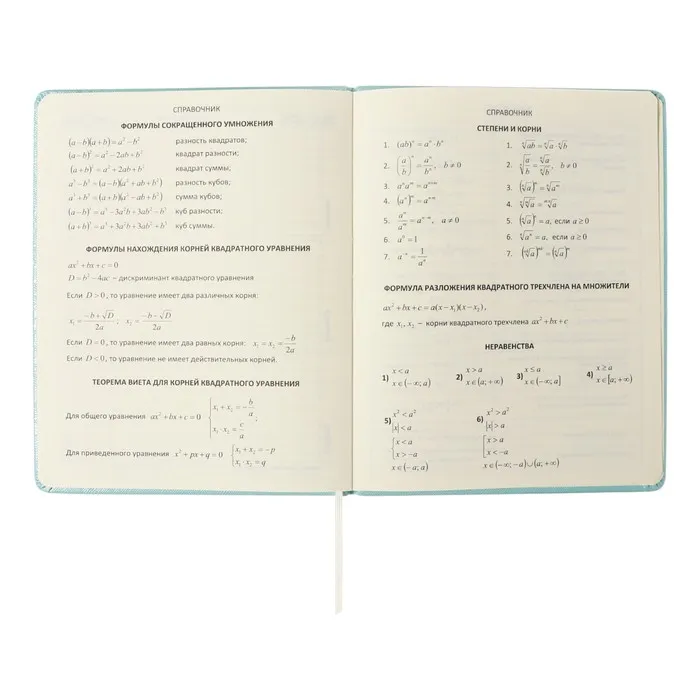 СПРАВОЧНИК
ФОРМУЛЫ СОКРАЩЕННОГО УМНОЖЕНИЯ
(a−b)(a+b)=a²−b² разность квадратов;
(a−b)²=a²−2ab+b² квадрат разности;
(a+b)²=a²+2ab+b² квадрат суммы;
a³−b³=(a−b)(a²+ab+b²) разность кубов;
a³+b³=(a+b)(a²−ab+b²) сумма кубов;
(a−b)³=a³−3a²b+3ab²−b³ куб разности;
(a+b)³=a³+3a²b+3ab²+b³ куб суммы.
ФОРМУЛЫ НАХОЖДЕНИЯ КОРНЕЙ КВАДРАТНОГО УРАВНЕНИЯ
ax²+bx+c=0
D=b²−4ac – дискриминант квадратного уравнения
Если D>0, то уравнение имеет два различных корня:
x₁=(−b+√D)/2a; x₂=(−b−√D)/2a
Если D=0, то уравнение имеет два равных корня: x₁=x₂=−b/2a
Если D<0, то уравнение не имеет действительных корней.
ТЕОРЕМА ВИЕТА ДЛЯ КОРНЕЙ КВАДРАТНОГО УРАВНЕНИЯ
Для общего уравнения ax²+bx+c=0 {x₁+x₂=−b/a, x₁·x₂=c/a
Для приведенного уравнения x²+px+q=0 {x₁+x₂=−p, x₁·x₂=q
СПРАВОЧНИК
СТЕПЕНИ И КОРНИ
1. (ab)ⁿ=aⁿ·bⁿ
2. (a/b)ⁿ=aⁿ/bⁿ, b≠0
3. aⁿaᵐ=aⁿ⁺ᵐ
4. (aⁿ)ᵐ=aⁿᵐ
5. aⁿ/aᵐ=aⁿ⁻ᵐ, a≠0
6. a⁰=1
7. a⁻ⁿ=1/aⁿ
1. ⁿ√ab=ⁿ√a·ⁿ√b
2. ⁿ√(a/b)=ⁿ√a/ⁿ√b, b≠0
3.
4.
5. (ⁿ√a)ⁿ=a, если a≥0
6. ⁿ√aⁿ=a, если a≥0
7.
ФОРМУЛА РАЗЛОЖЕНИЯ КВАДРАТНОГО ТРЕХЧЛЕНА НА МНОЖИТЕЛИ
ax²+bx+c=a(x−x₁)(x−x₂),
где x₁, x₂ – корни квадратного трехчлена ax²+bx+c
НЕРАВЕНСТВА
1) x<a
x∈(−∞;a)
2) x>a
x∈(a;+∞)
3) x≤a
x∈(−∞;a]
4) x≥a
x∈[a;+∞)
5) x²<a²
|x|<a
{x<a
x>−a
x∈(−a;a)
6) x²>a²
|x|>a
[x>a
x<−a
x∈(−∞;−a)∪(a;+∞)